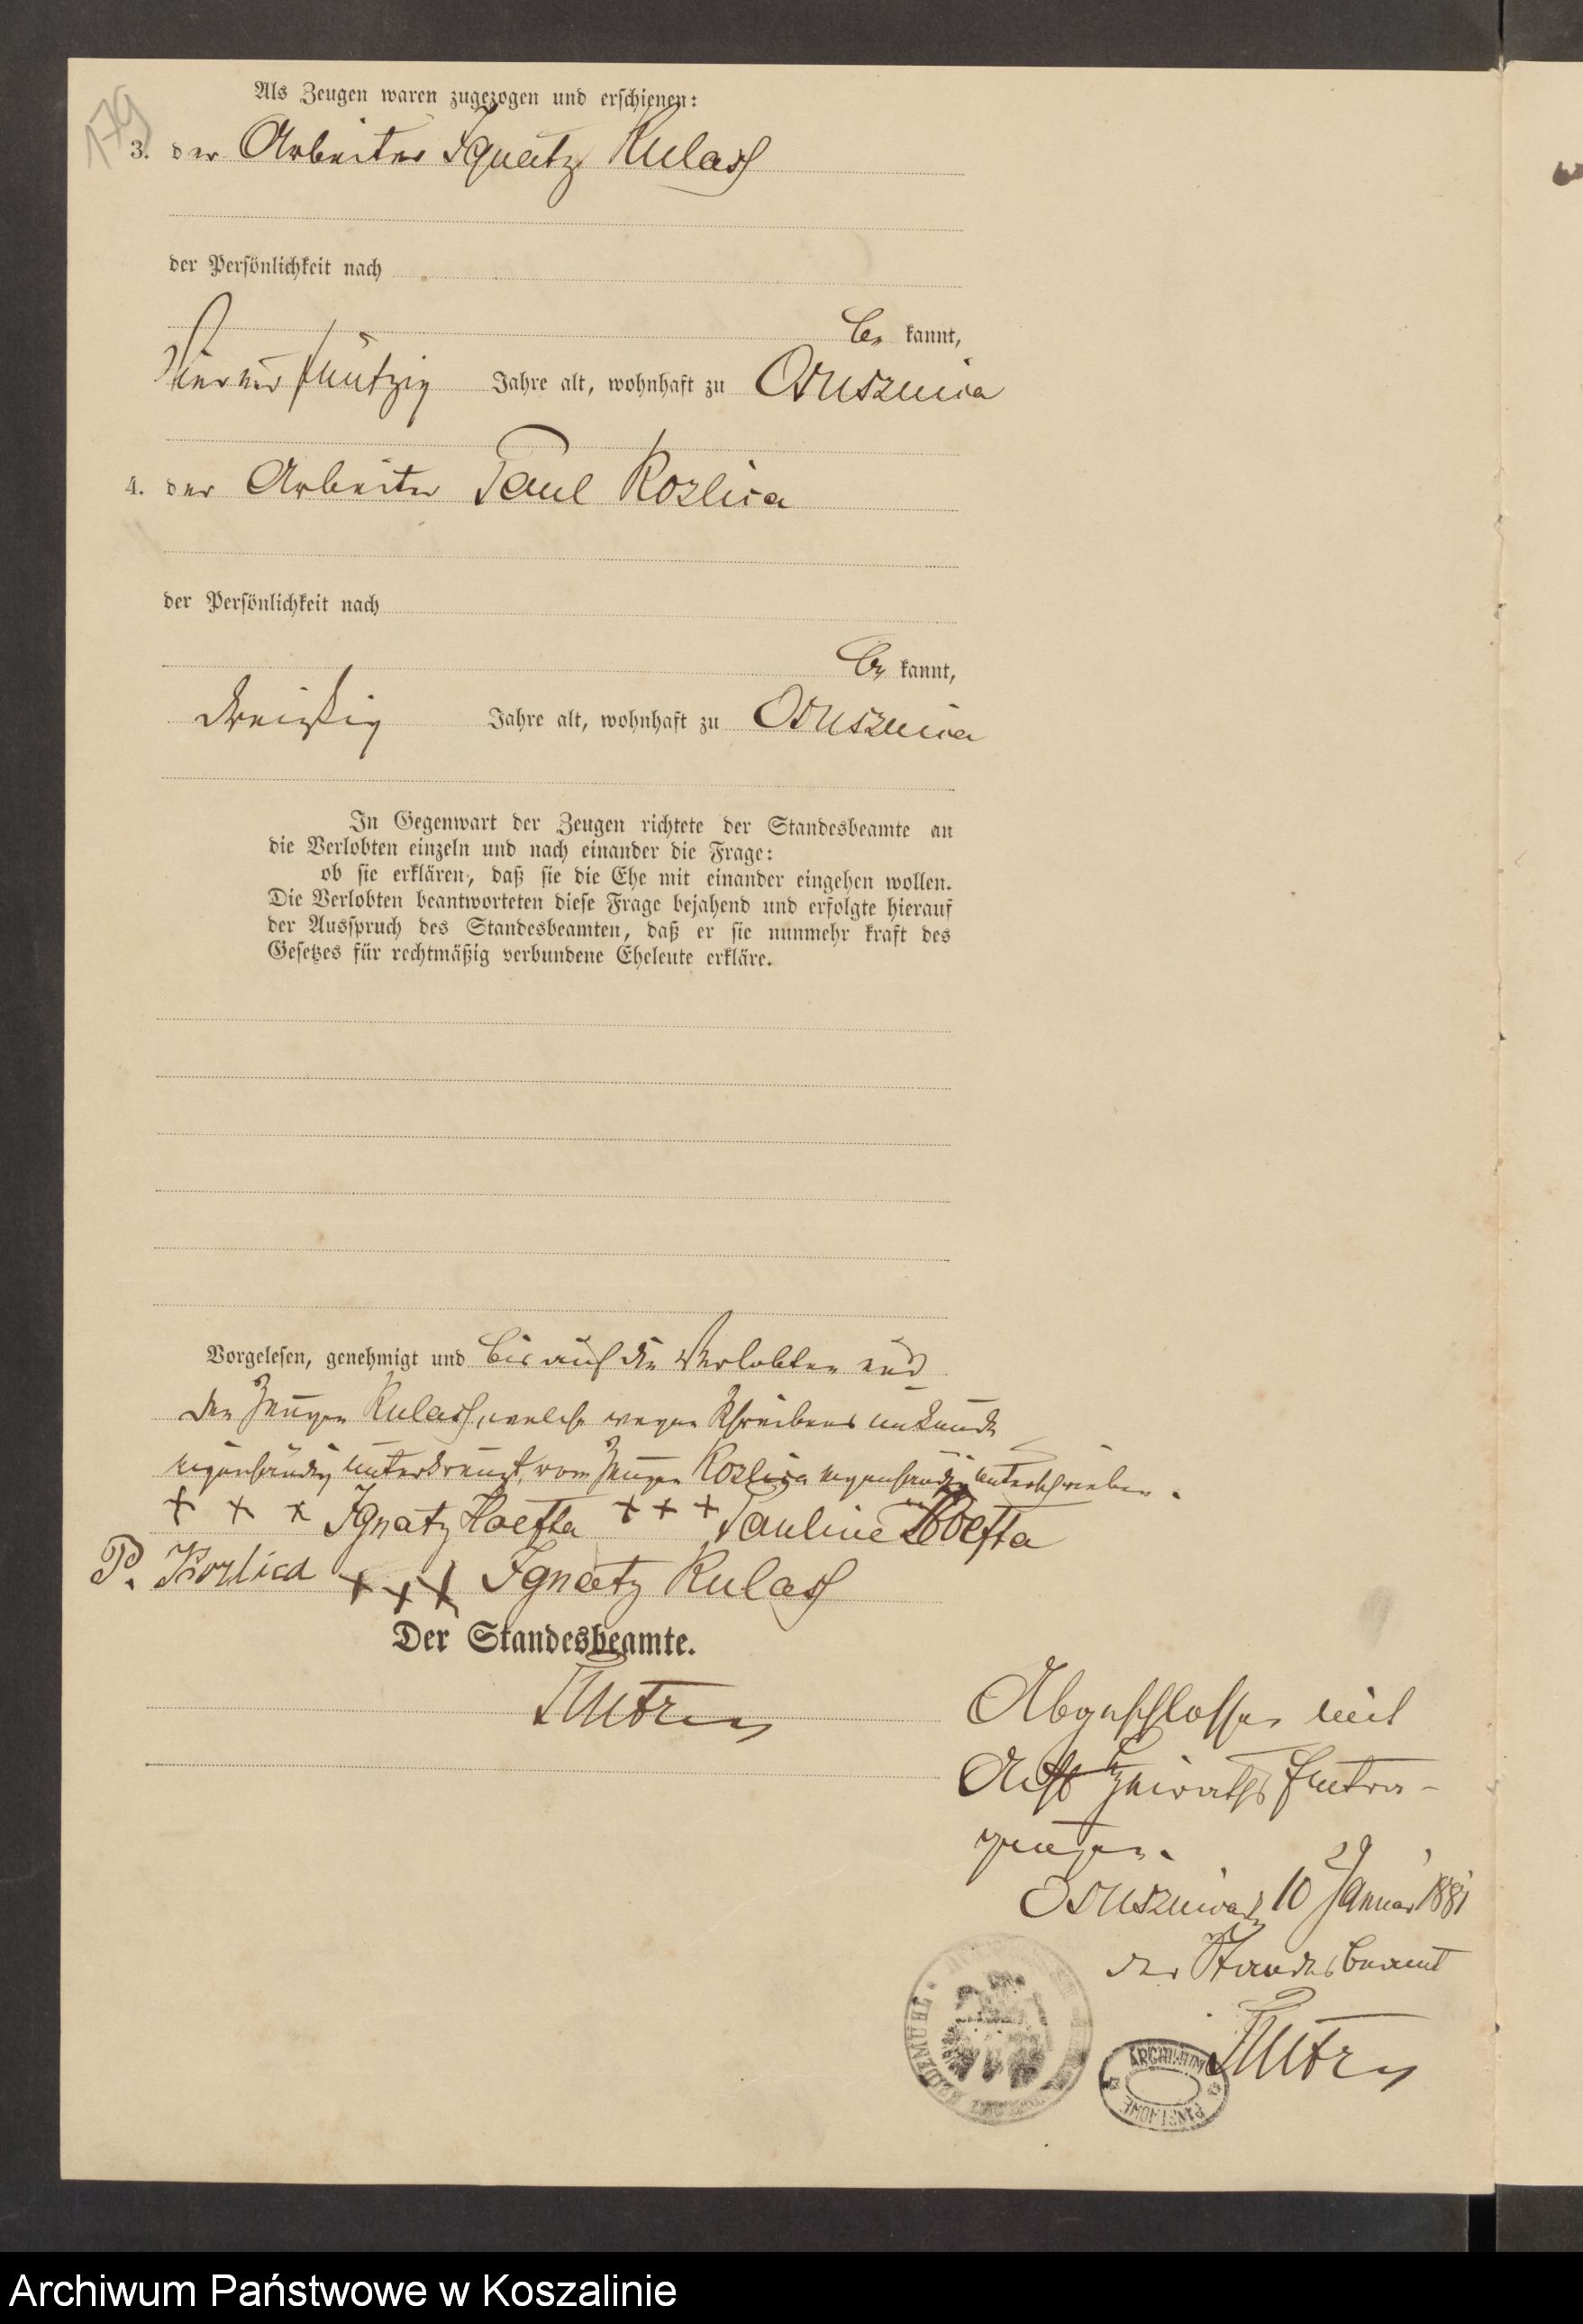 179
Als Zeugen waren zugezogen und erschienen:
3. der Arbeiter Ignatz Kulas
der Persönlichkeit nach
be kannt,
Vier und fünfzig Jahre alt, wohnhaft zu Ossusznica
4. der Arbeiter Paul Kozlica
der Persönlichkeit nach
be kannt,
dreißig Jahre alt, wohnhaft zu Ossusznica
In Gegenwart der Zeugen richtete der Standesbeamte an
die Verlobten einzeln und nach einander die Frage:
ob sie erklären, daß sie die Ehe mit einander eingehen wollen.
Die Verlobten beantworteten diese Frage bejahend und erfolgte hierauf
der Ausspruch des Standesbeamten, daß er sie nunmehr kraft des
Gesetzes für rechtmäßig verbundene Eheleute erkläre.
Vorgelesen, genehmigt und bis auf die Verlobten und
den Zeugen Kulas, welche wegen Schreibens unkunde
eigenhändig unterkreuzt, vom Zeugen Kozlica eigenhändig unterschrieben.
+ + + Ignatz + + + Pauline
P. Kozlica + + + Ignatz Kulas
Der Standesbeamte.
Abgeschlossen mit
Acht Heiraths Eintra-
gungen.
Ossusznica, 10 Januar 1881
der Standesbeamt
ARCHIWUM
PAŃSTWOWE
Archiwum Państwowe w Koszalinie